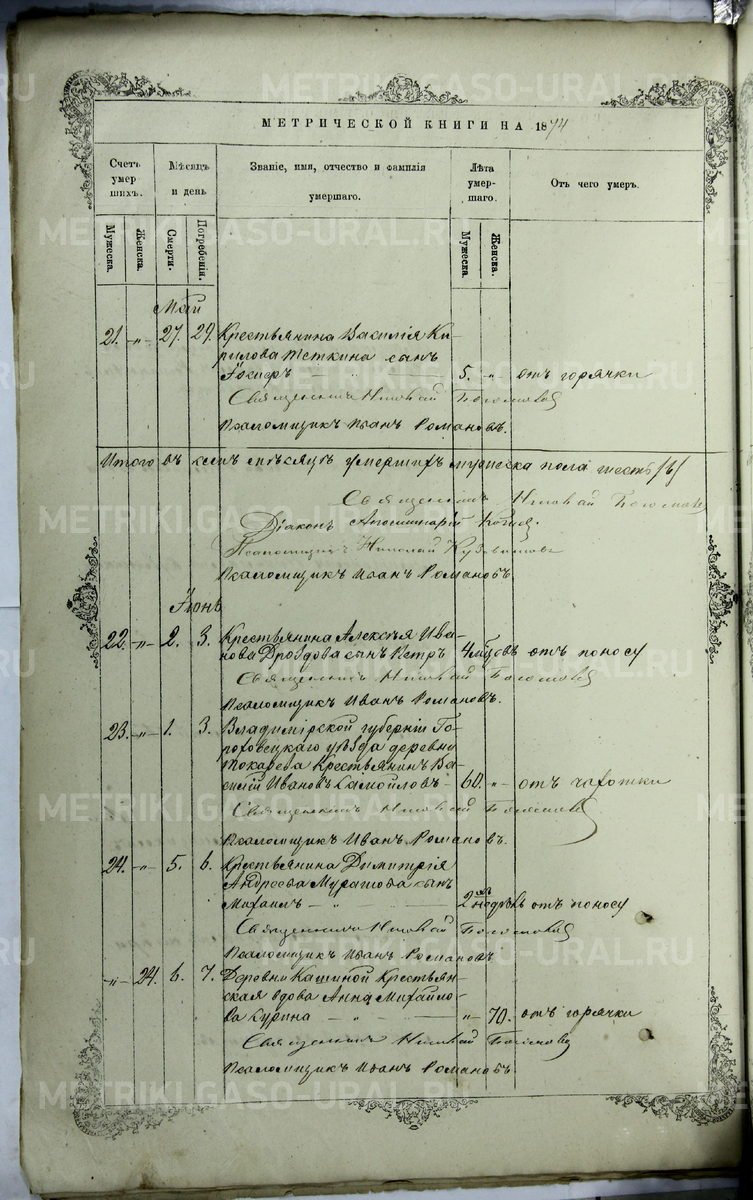 МЕТРИЧЕСКОЙ КНИГИ НА 1874
Счетъ умер шихъ.
Мѣсяцъ и день
Званіе, имя, отчество и фамилія умершаго.
Лѣта умер- шаго.
Отъ чего умеръ.
Мужеска.
Женска.
Смерти.
Погребенія.
Мужеска.
Женска.
Май
21. -„- 27. 29. Крестьянина Василія Ки-
рилова Теткина сынъ
Іосифъ 5. „ отъ горячки
Священникъ Николай
Псаломщикъ Иванъ Романовъ.
Итого въ семъ мѣсяцѣ умершихъ мужеска пола шесть /6/
Священникъ Николай
Діаконъ
Псаломщикъ Николай
Псаломщикъ Иванъ Романовъ.
Іюнь
22. -„- 2. 3. Крестьянина Алексѣя Ива-
нова Дроздова сынъ Петръ 4 мѣсяц. отъ поносу
Священникъ Николай
Псаломщикъ Иванъ Романовъ.
23. -„- 1. 3. Владимірской губерніи Го-
роховецкаго уѣзда деревни
Токарева Крестьянинъ Ва-
силій Ивановъ Самойловъ 60. „ отъ чахотки
Священникъ Николай
Псаломщикъ Иванъ Романовъ.
24. -„- 5. 6. Крестьянина Димитрія
Андреева Муратова сынъ
Михаилъ 2 недѣль отъ поносу
Священникъ Николай
Псаломщикъ Иванъ Романовъ
-„- 24. 6. 7. Деревни Кашиной Крестьян-
ская вдова Анна Михайло-
ва Курина „ 70. отъ горячки
Священникъ Николай
Псаломщикъ Иванъ Романовъ
METRIKI.GASO-URAL.RU